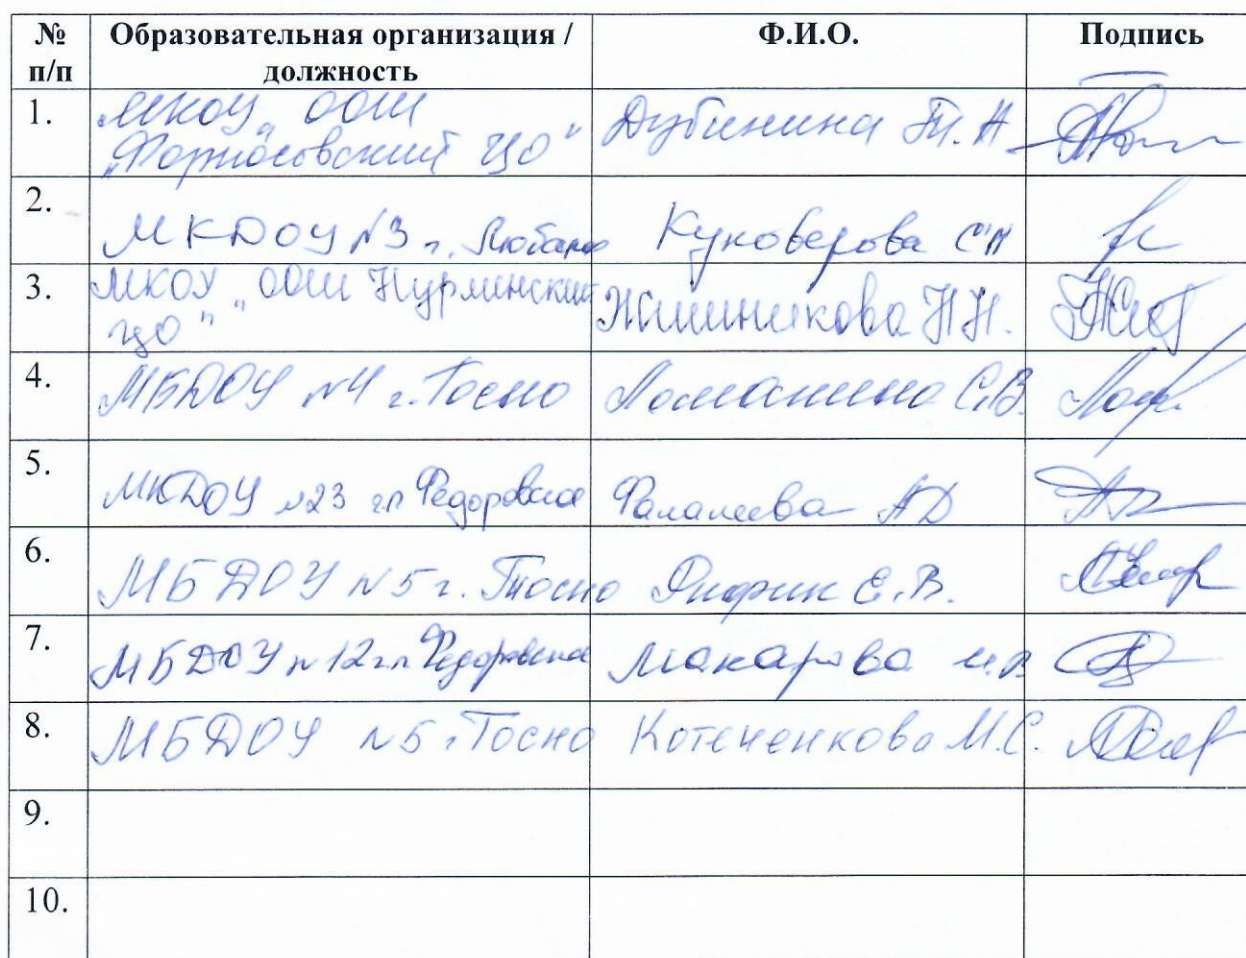 № п/п Образовательная организация / должность Ф.И.О. Подпись
1. МКОУ "ООШ Дубинина Т.А.
"Форносовский ЦО"
2. МКДОУ №3 г. Любань Куковерова С Н
3. МКОУ "ООШ Нурминский Н.Н.
ЦО"
4. МБДОУ №4 г. Тосно Ломанина С.В.
5. МКДОУ №23 гп Федоровское Фалалеева АД
6. МБДОУ №5 г. Тосно Е.В.
7. МБДОУ №12 гп Федоровское Макарова
8. МБДОУ №5 г Тосно Котеченкова М.С.
9.
10.